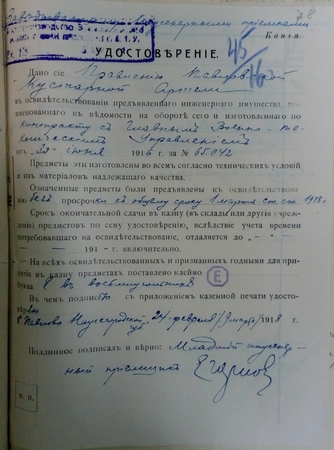 78
Копія.
УДОСТОВѢРЕНІЕ.
45/16
Дано сіе Правленію Павловской
Кустарной Артели
въ освидѣтельствованіи предъявленнаго инженернаго имущества, по-
именованнаго въ вѣдомости на оборотѣ сего и изготовленнаго по
контракту съ Главнымъ Военно-те-
хническимъ Управленіемъ
отъ 22 іюня 1916 г. за № 65042
Предметы эти изготовлены во всемъ согласно техническихъ условій
и изъ матеріаловъ надлежащаго качества.
Означенные предметы были предъявлены къ освидѣтельствова-
нію безъ просрочки къ общему сроку 1 марта ст. ст. 1918 г.
Срокъ окончательной сдачи въ казну (въ склады или другія учреж-
денія) предметовъ по сему удостовѣренію, вслѣдствіе учета времени
потребовавшаго на освидѣтельствованіе, отдаляется до
191 г. включительно.
На всѣхъ освидѣтельствованныхъ и признанныхъ годными для прі-
ема въ казну предметахъ поставлено клеймо Е
буква 8 въ восьмиугольникѣ
Въ чемъ подписью съ приложеніемъ казенной печати удосто-
вѣряю
с. Павлово Нижегородской губ. 24 февраля / 9 марта / 1918 г.
Подлинное подписалъ и вѣрно: Младшій
пріемщикъ
К. П.